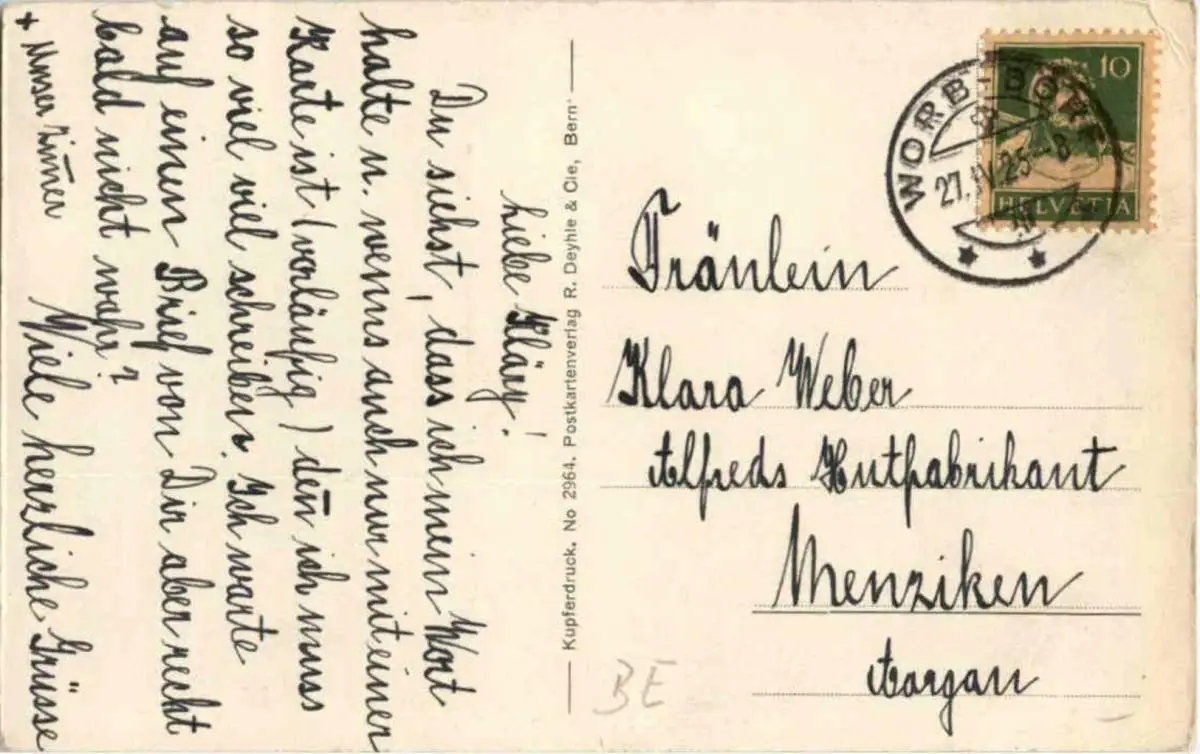 Liebe Kläry!
Du siehst, dass ich mein Wort
halte u. wenns auch nur mit einer
Karte ist (vorläufig) den̄ ich muss
so viel viel schreiben. Ich warte
auf einen Brief von Dir aber recht
bald nicht wahr?
Viele herzliche Grüsse
+ Unser Zim̄er
Kupferdruck. No 2964. Postkartenverlag R. Deyhle & Cie, Bern
WORB-DORF
27.IV.25-8
10
HELVETIA
Fräulein
Klara Weber
Alfreds Hutfabrikant
Menziken
Aargau
BE